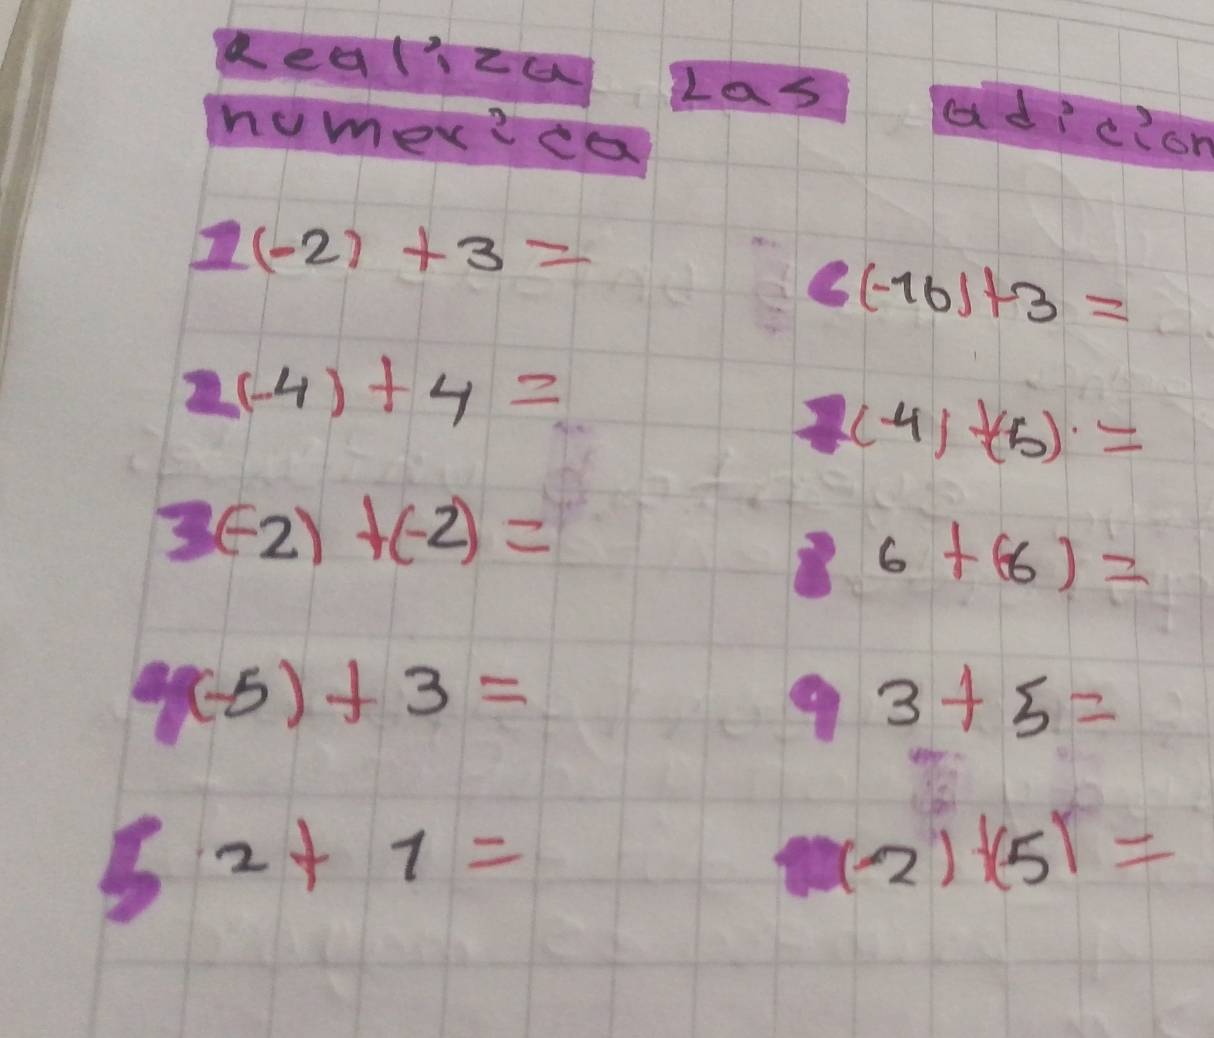 Realiza Las adicion
numerica
1 (-2) + 3 =
2 (-4) + 4 =
3 (-2) + (-2) =
4 (-5) + 3 =
5 2 + 1 =
6 (-16) + 3 =
7 (-4) + (5) =
8 6 + (-6) =
9 3 + 5 =
10 (-2) + (5) =